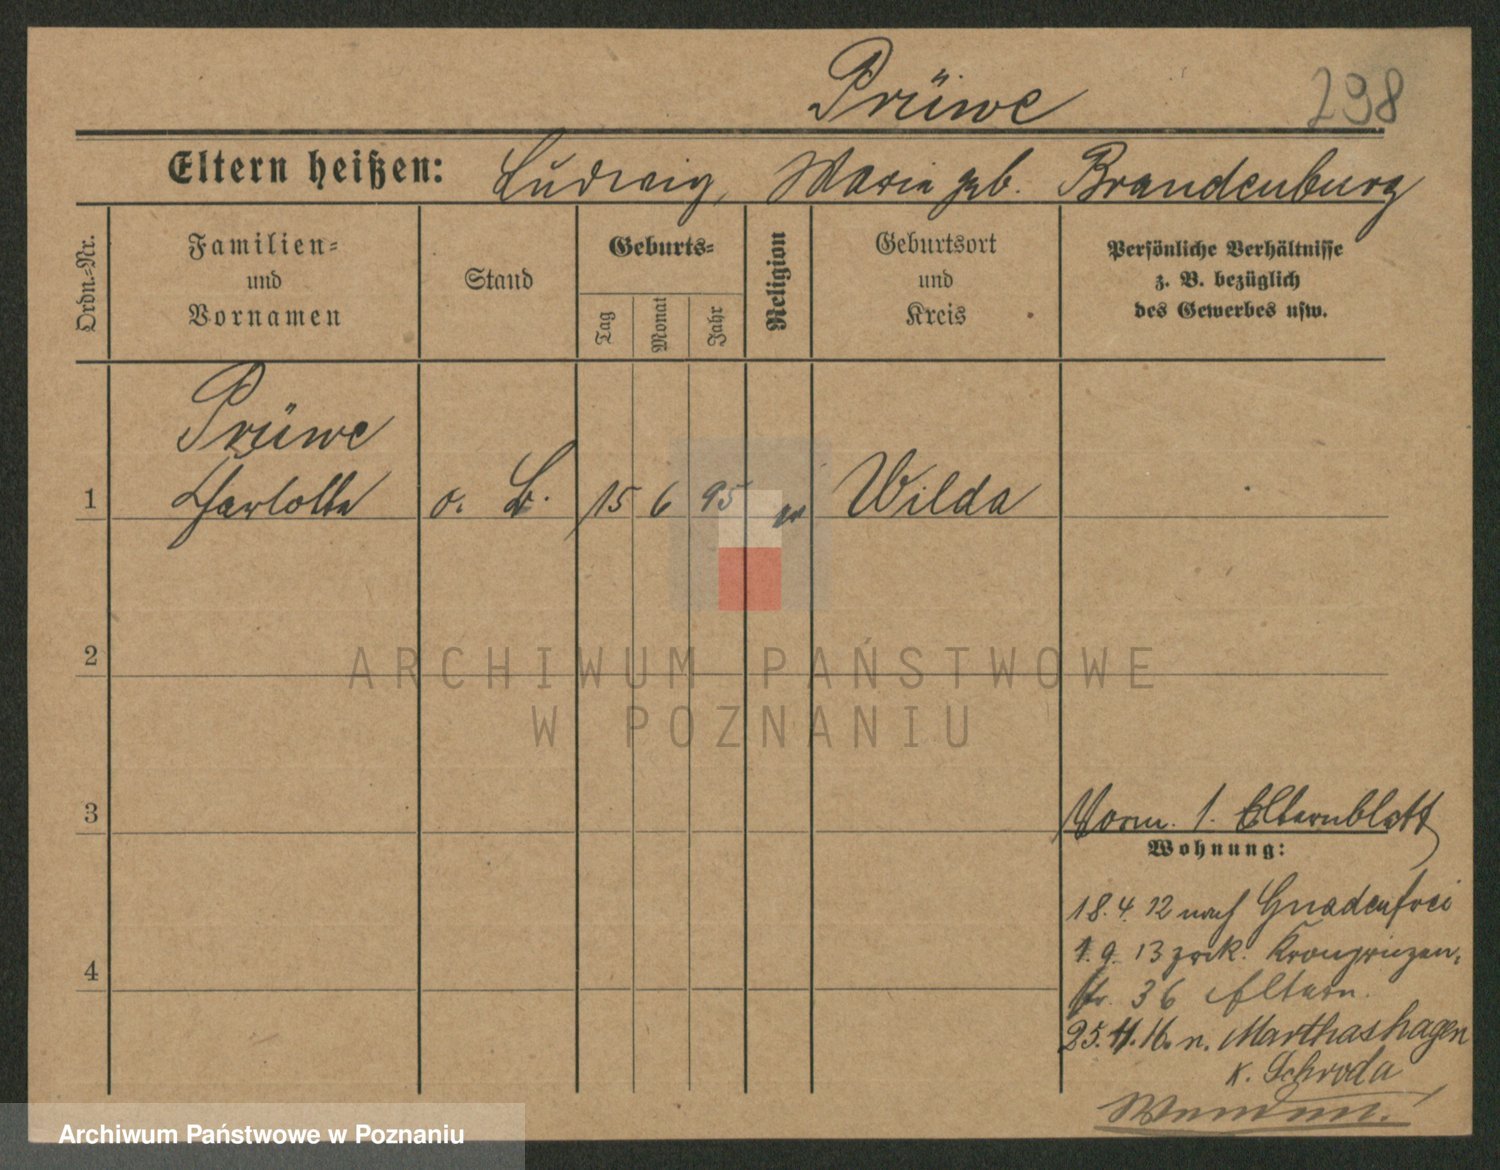 Prüwe
298
Eltern heißen: Ludwig, Marie geb. Brandenburg
Ordn.-Nr.
Familien-
und
Vornamen
Stand
Geburts-
Tag
Monat
Jahr
Religion
Geburtsort
und
Kreis
Persönliche Verhältnisse
z. B. bezüglich
des Gewerbes usw.
Prüwe
1 Charlotte o. B. 15 6 95 ev Wilda
2
ARCHIWUM PAŃSTWOWE
W POZNANIU
3 Vorm. 1. Elternblatt
Wohnung:
18.4.12 nach Gnadenfrei
1.9.13 zrck. Kronprinzen-
4
str. 36 Eltern.
25.11.16. n. Marthashagen
K. Schroda
Archiwum Państwowe w Poznaniu